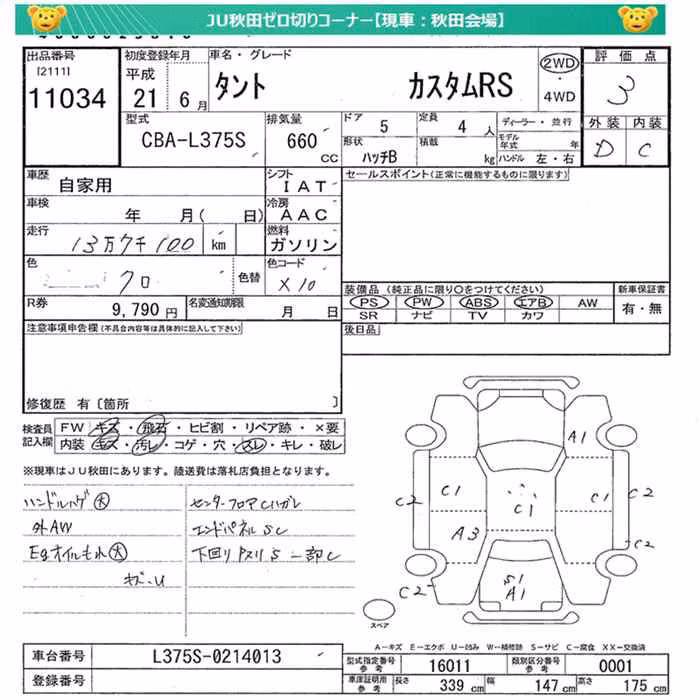 JU秋田ゼロ切りコーナー【現車：秋田会場】
出品番号
[2111]
11034
初度登録年月
平成
21 6月
車名・グレード
タント カスタムRS
2WD
・
4WD
評価点
3
型式
CBA-L375S
排気量
660 CC
ドア 5
定員 4 人
ディーラー・並行
形状 ハッチB
積載 kg
モデル年式 年
ハンドル 左・右
外装 内装
D C
車歴
自家用
シフト
IAT
セールスポイント(正常に機能するものに限ります)
車検
年 月( 日)
冷房
AAC
走行
13万7千100 km
燃料
ガソリン
色
クロ
色替
色コード
X10
R券
9,790円
名変通知期限
月 日
装備品 (純正品に限り○をつけてください)
新車保証書
PS PW ABS エアB AW
有・無
SR ナビ TV カワ
後日品
注意事項申告欄(不具合内容等は具体的に記入して下さい)
修復歴 有〔箇所 〕
検査員記入欄
FW キズ・飛石・ヒビ割・リペア跡・×要
内装 キズ・汚レ・コゲ・穴・スレ・キレ・破レ
※現車はJU秋田にあります。陸送費は落札店負担となります。
ハンドルハゲ 大
外AW
Egオイルもれ 大
キズ・U
センターフロアCハガレ
エンドパネルSC
下回りサビS 一部C
A1
C2
C1
C1
C1
C2
A3
C2
C2
S1
A1
スペア
A－キズ E－エクボ U－凹み W－補修跡 S－サビ C－腐食 XX－交換済
車台番号
L375S-0214013
登録番号
型式指定番号 参考
16011
類別区分番号 参考
0001
車庫証明用 参考
長さ 339 cm
幅 147 cm
高さ 175 cm